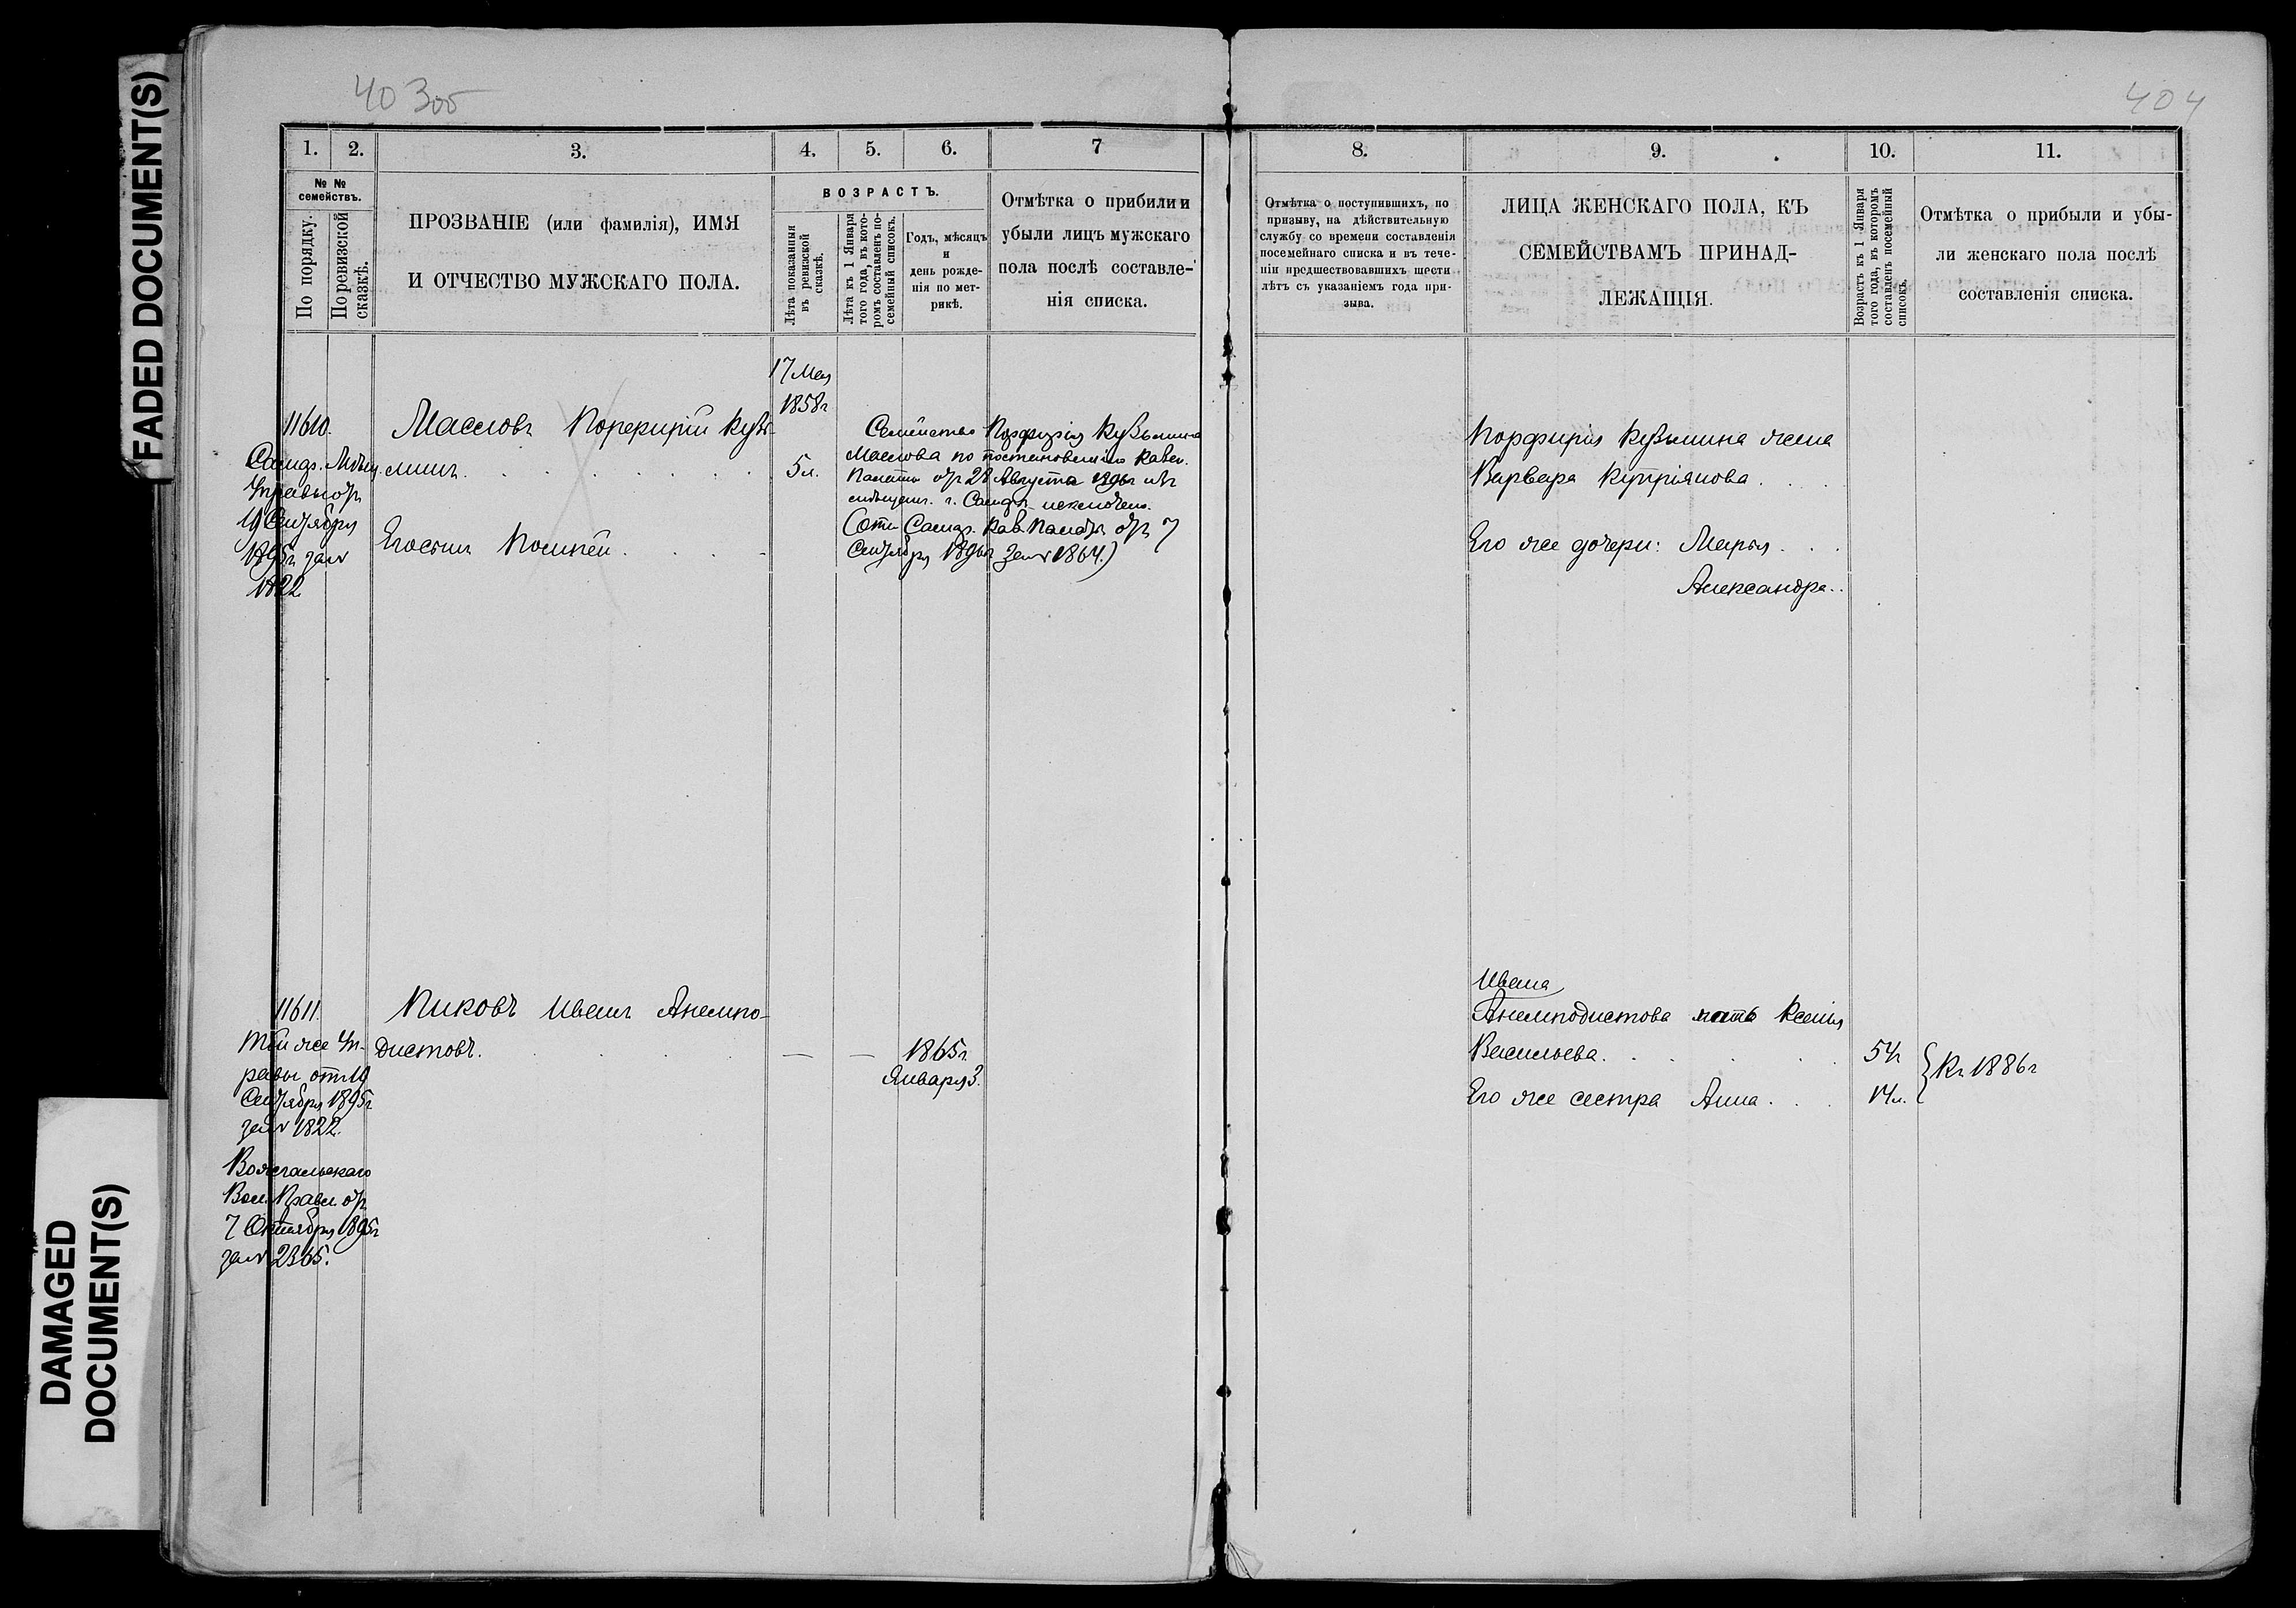 FADED DOCUMENT(S)
DAMAGED
DOCUMENT(S)
403об
404
1.
2.
3.
4.
5.
6.
7
№ №
семействъ.
По порядку.
По ревизской
сказкѣ.
ПРОЗВАНІЕ (или фамилія), ИМЯ
И ОТЧЕСТВО МУЖСКАГО ПОЛА.
ВОЗРАСТЪ.
Лѣта показанныя
въ ревизской
сказкѣ.
Лѣта къ 1 Января
того года, въ кото-
ромъ составленъ по-
семейный списокъ.
Годъ, мѣсяцъ
и
день рожде-
нія по мет-
рикѣ.
Отмѣтка о прибили и
убыли лицъ мужскаго
пола послѣ составле-
нія списка.
11610.
Самар. Мѣщ.
Управы отъ
19 Сентября
1895г за №
1822
Масловъ Порфирій Кузь-
минъ
17 Мая
1858г
5л.
Егосынъ Помпей
Семейство Порфирія Кузьмина
Маслова по постановленію Казен.
Палаты отъ 28 Августа 1896г изъ
мѣщан. г. Самары исключено.
(Отн. Самар. Каз. Палаты отъ 7
Сентября 1896г за № 1864.)
11611.
Той же Уп-
равы отъ 19
Сентября 1895г
за № 1822.
Вол. Правл. отъ
7 Октября 1895г
за № 2365.
Пиковъ Иванъ Анемпо-
дистовъ.
— — 1865г
Января 3.
8.
9.
10.
11.
Отмѣтка о поступившихъ, по
призыву, на дѣйствительную
службу со времени составленія
посемейнаго списка и въ тече-
ніи предшествовавшихъ шести
лѣтъ съ указаніемъ года при-
зыва.
ЛИЦА ЖЕНСКАГО ПОЛА, КЪ
СЕМЕЙСТВАМЪ ПРИНАД-
ЛЕЖАЩІЯ.
Возрастъ къ 1 Января
того года, въ которомъ
составленъ посемейный
списокъ.
Отмѣтка о прибыли и убы-
ли женскаго пола послѣ
составленія списка.
Порфирія Кузьмина жена
Варвара Купріянова
Его же дочери: Марья
Александра
Ивана
Анемподистова мать Ксенія
Васильева 54г
Его же сестра Анна 14л.
Къ 1886г